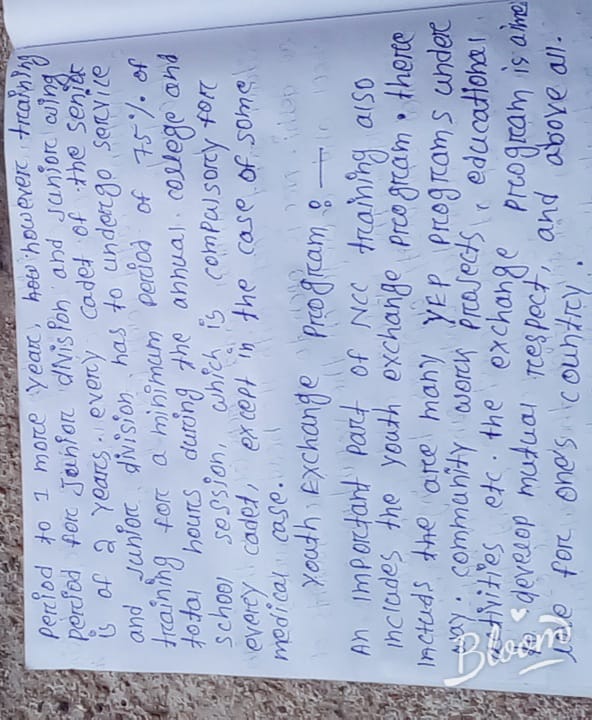 period to 1 more year, how however, training
period for Jouniør division and junior wing
is of 2 years. every cadet of the senior
and junior division has to undergo service
training for a minimum period of 75% of
total hours during the annual college and
school session, which is compulsory for
every cadet, except in the case of some
medical case.
Youth Exchange Program :-
An important part of NCC training also
includes the youth exchange program. there
includs the are many YEP programs under
way. community work projects, educational
activities etc. the exchange program is aime
develop mutual respect, and above all.
for one's country.
Bloom